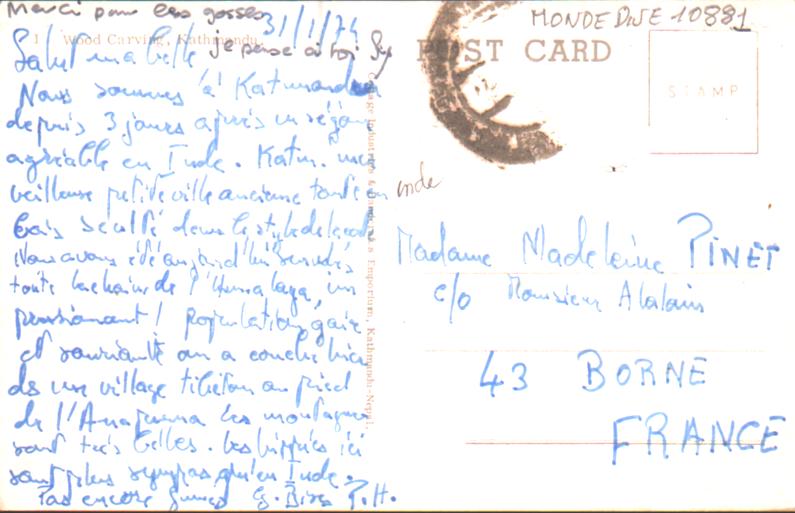 Merci pour les gosses
31/1/74
je pense à toi
1 Wood Carving, Kathmandu
Salut ma belle
Nous sommes à Katmandou
depuis 3 jours après un séjour
agréable en Inde. Katm. mer
veilleuse petite ville ancienne toute en
bois sculpté dans le style de la
Nous avons été aujourd'hui
toute la chaine de l'Himalaya, im
pressionant! population gaie
et souriante on a couché hier
ds un village tibétain au pied
de l'Anapurna les montagnes
sont très belles. Les hippies ici
sont plus sympas qu'en Inde.
Pas encore P.H.
Cottage Industries & Handicrafts Emporium, Kathmandu-Nepal.
MONDE DIVE 10881
POST CARD
STAMP
inde
Madame Madeleine PINET
c/o Monsieur Alalain
43 BORNE
FRANCE